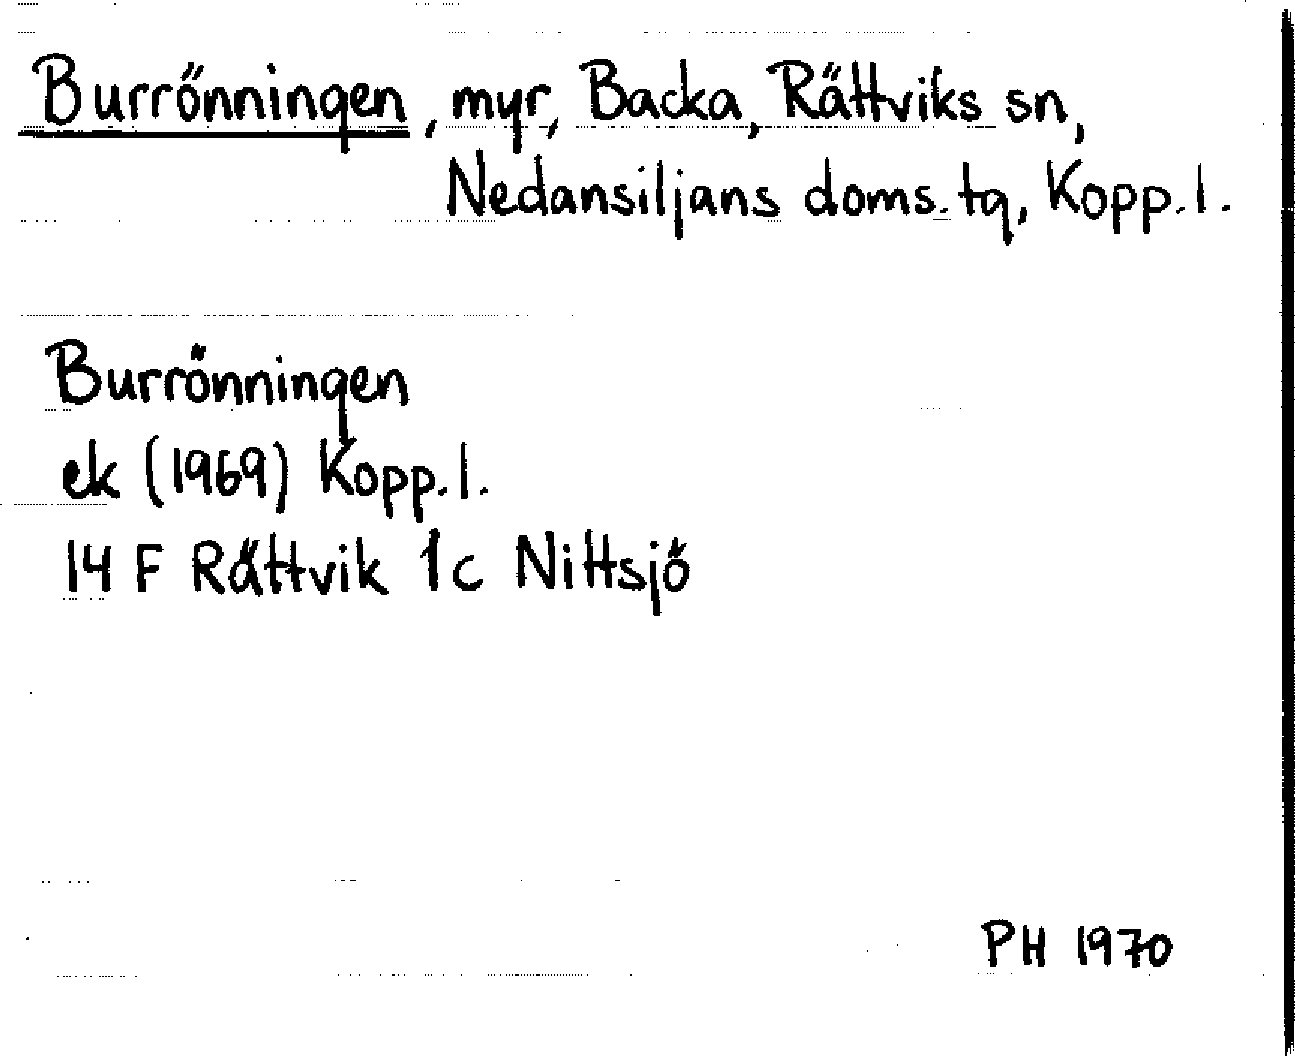 Burrönningen, myr, Backa, Rättviks sn,
Nedansiljans doms. tg, Kopp. l.
Burrönningen
ek (1969) Kopp. l.
14 F Rättvik 1c Nittsjö
PH 1970